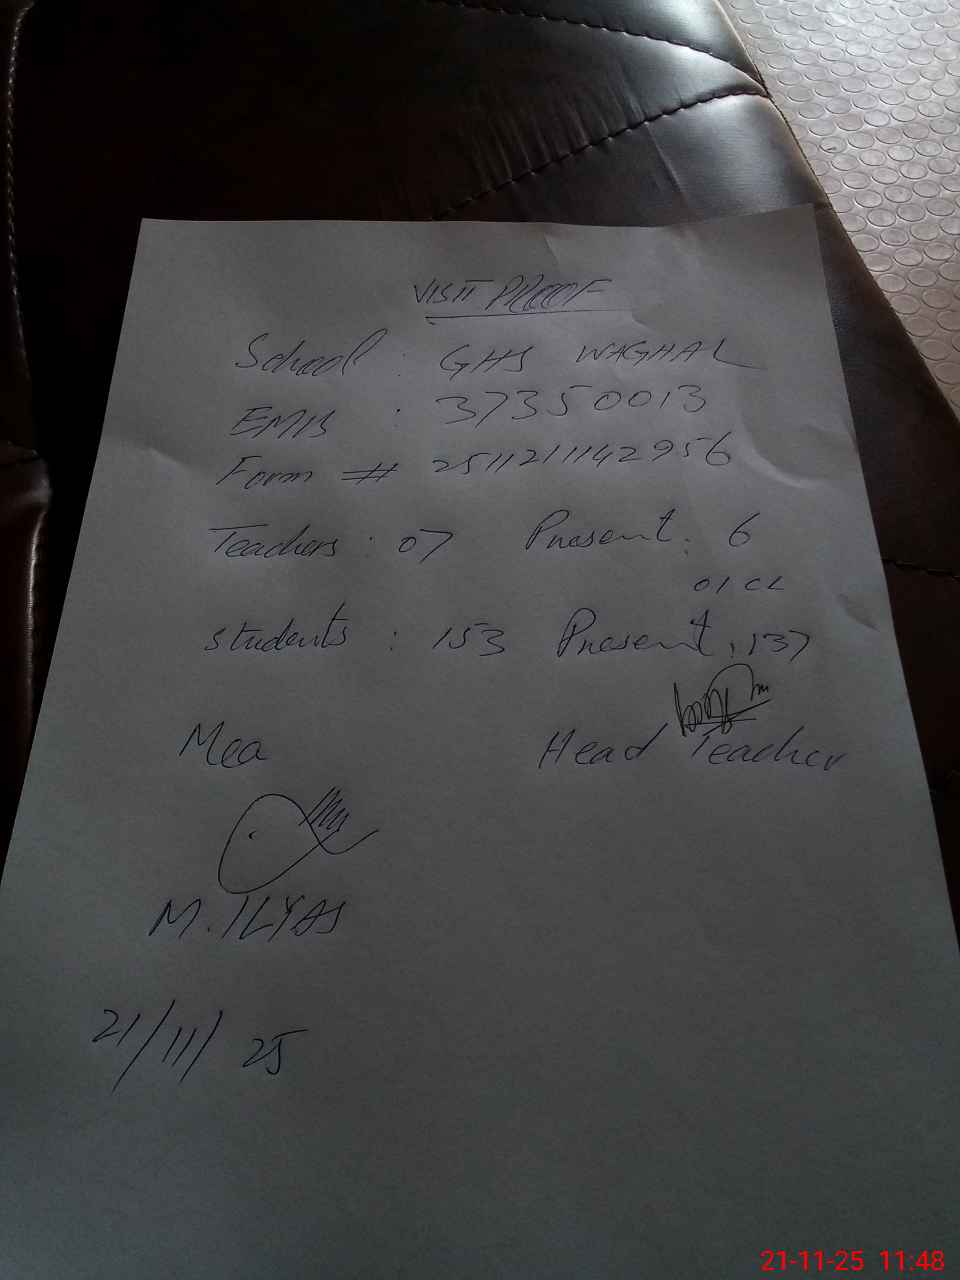 VISIT PROOF
School : GHS WAGHAL
EMIS : 37350013
Form # 2511211142956
Teachers : 07 Present : 6
01 CL
students : 153 Present : 137
Mea Head Teacher
M. ILYAS
21/11/25
21-11-25 11:48